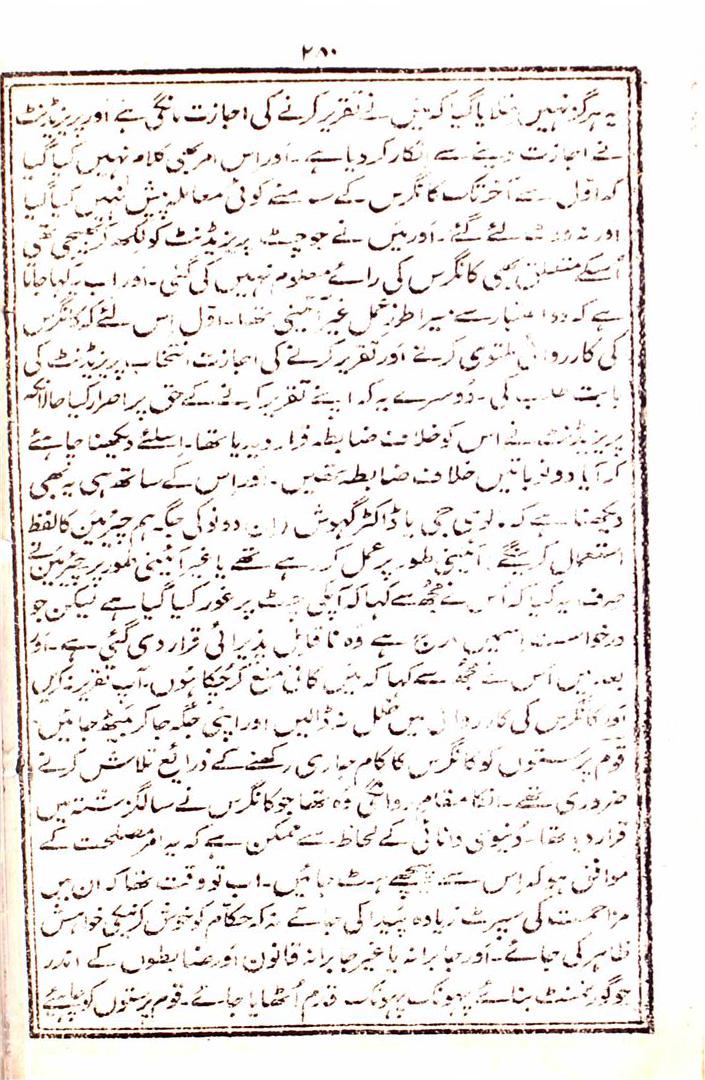 ۲۸۰
یہ ہرگز نہیں بتلایا گیا کہ میں نے تقریر کرنے کی اجازت مانگی ہے اور پریزیڈنٹ
نے اجازت دینے سے انکار کر دیا ہے۔ اور اس امر کبھی کلام نہیں کیا گیا
کہ اوّل سے آخر تک کانگرس کے سامنے کوئی معاملہ پیش نہیں کیا گیا
اور نہ ووٹ لئے گئے۔ اور میں نے جو چٹ پریزیڈنٹ کو لکھ کر بھیجی تھی
اُسکے متعلق بھی کانگرس کی رائے معلوم نہیں کی گئی۔ اور اب یہ کہا جاتا
ہے کہ دو اعتبار سے میرا طرز عمل غیر آئینی تھا۔ اوّل اس لئے کہ کانگرس
کی کارروائی ملتوی کرنے اور تقریر کرنے کی اجازت انتخاب پریزیڈنٹ کی
بابت طلب کی۔ دُوسرے یہ کہ اپنے تقریر کرنے کے حق پر اصرار کیا حالانکہ
پریزیڈنٹ نے اس کو خلاف ضابطہ قرار دیدیا تھا۔ اسلئے دیکھنا چاہئے
کہ آیا دونو باتیں خلاف ضابطہ تھیں۔ اور اس کے ساتھ ہی یہ بھی
دیکھنا ہے کہ۔ لوی جی یا ڈاکٹر گہوش ران دونو کی جگہ ہم چیرمین کا لفظ
استعمال کرینگے۔ آئینی طور پر عمل کر رہے تھے یا غیر آئینی طور پر۔ چیرمین نے
صرف یہ کیا کہ اُس نے مجھ سے کہا کہ آپکی چٹ پر غور کیا گیا ہے لیکن جو
درخواست اسمیں درج ہے وُہ ناقابل پذیرائی قرار دی گئی ہے۔ اور
بعد میں اُس نے مجھ سے کہا کہ میں کافی منع کر چُکا ہوں۔ آپ تقریر نہ کریں
اور کانگرس کی کارروائی میں خلل نہ ڈالیں اور اپنی جگہ جا کر بیٹھ جائیں
قوم پرستوں کو کانگرس کا کام جاری رکھنے کے ذرائع تلاش کرنے
ضروری تھے۔ انکا مقام روانگی وُہ تھا جو کانگرس نے سالگزشتہ میں
قرار دیا تھا۔ دُنیوی دانائی کے لحاظ سے ممکن ہے کہ یہ امر مصلحت کے
موافق ہو کہ اس سے پیچھے ہٹ جائیں۔ اب تو وقت تھا کہ ان میں
مزاحمت کی سپرٹ زیادہ پیدا کی جائے نہ کہ حکام کو خوش کرنیکی خواہش
ظاہر کی جائے۔ اور جابرانہ یا غیر جابرانہ قانون اور ضابطوں کے اندر
جو گورنمنٹ بنائے پھونک پھونک قدم اُٹھایا جائے۔ قوم پرستوں کو چاہیئے